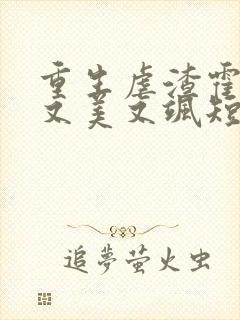 重生虐渣霍
又美又飒短
追夢萤火虫